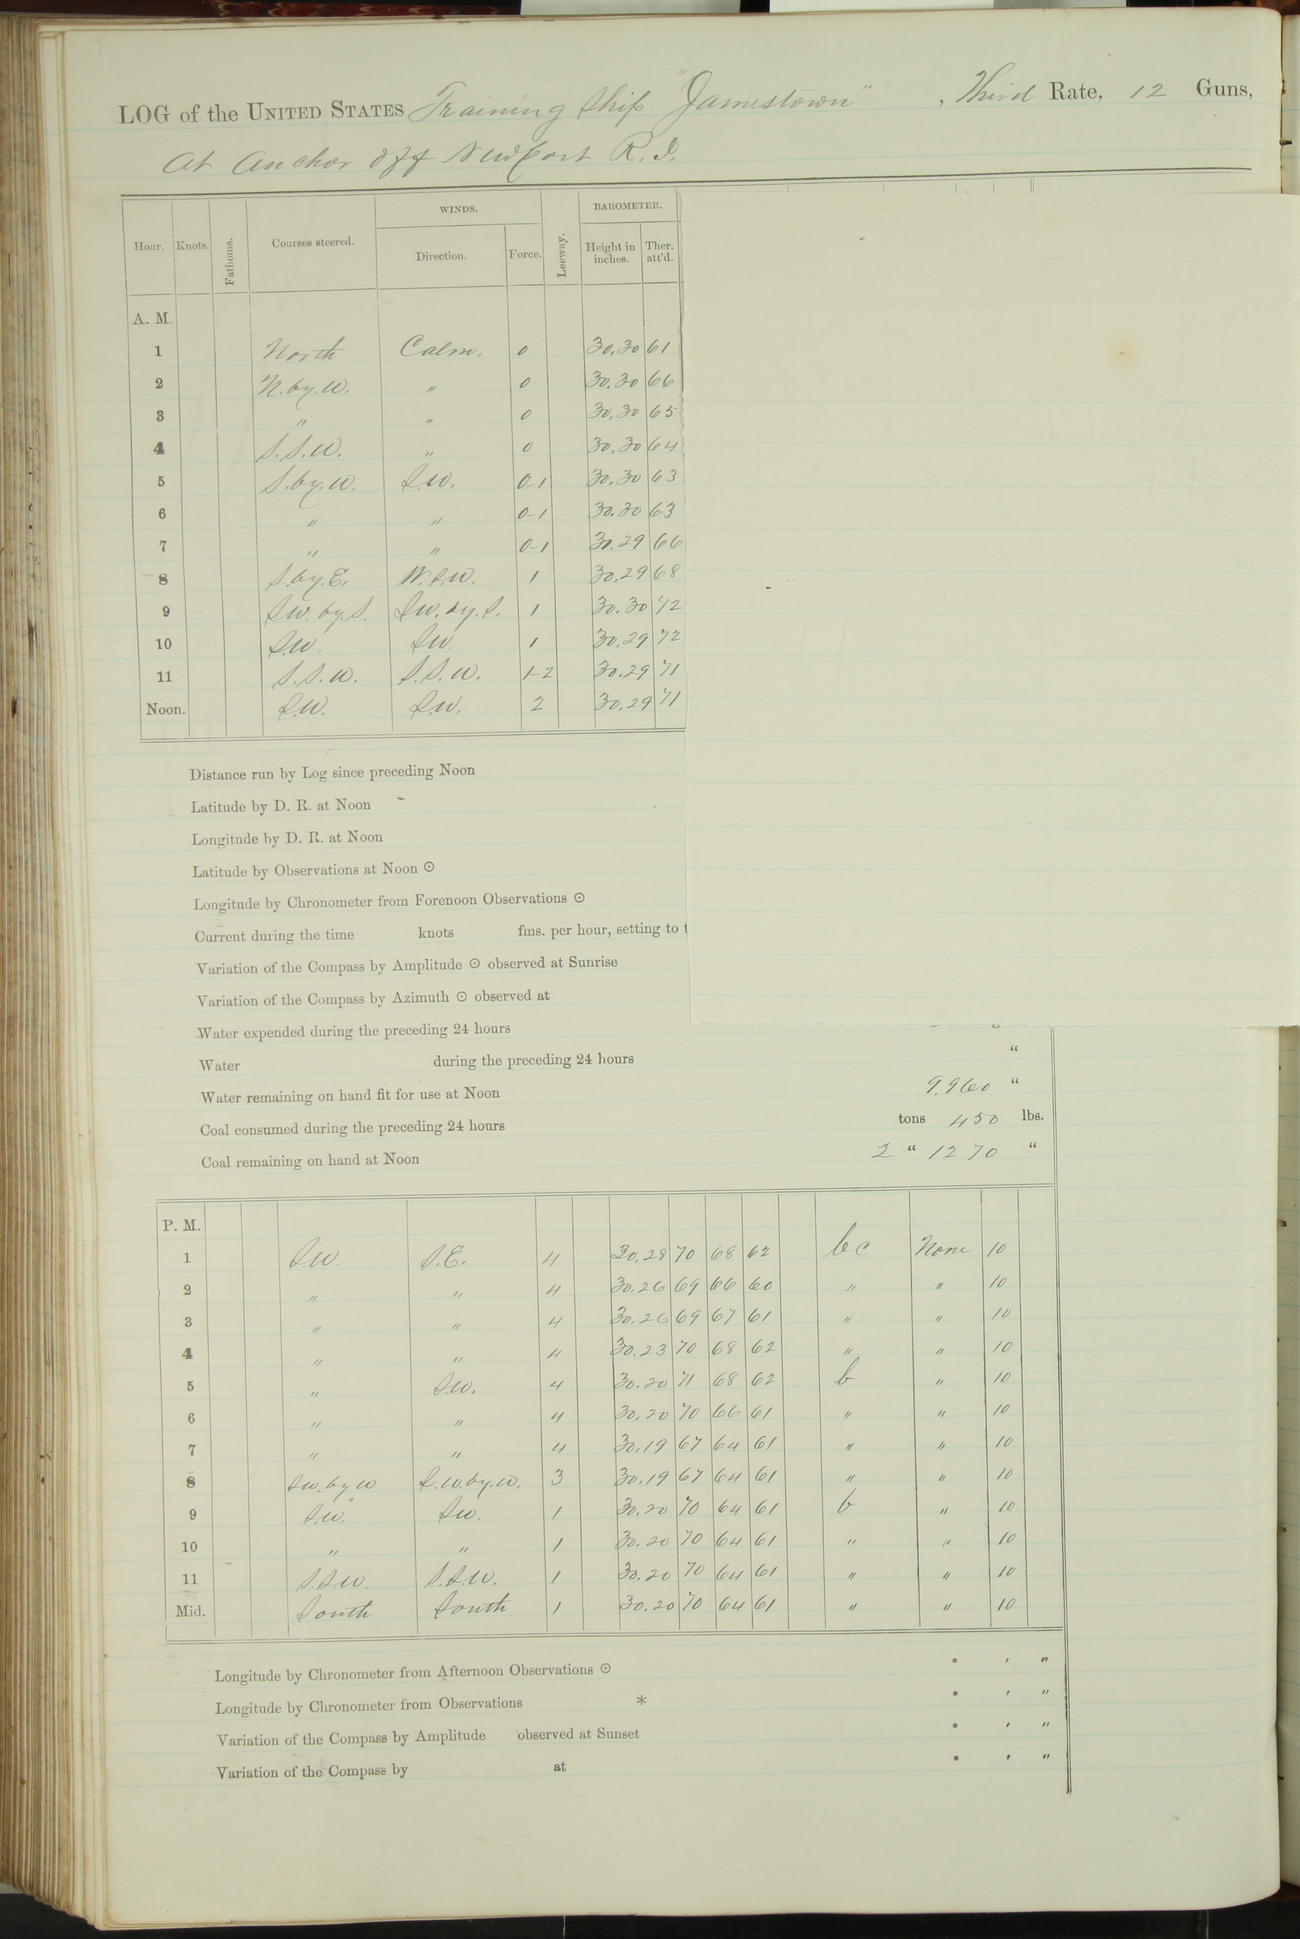 LOG of the UNITED STATES Training Ship "Jamestown", Third Rate, 12 Guns,
At Anchor off Newport R.I.
Hour. Knots. Fathoms. Courses steered. WINDS. Direction. Force. Leeway. BAROMETER. Height in inches. Ther. att'd.
A. M.
1 North Calm. 0 30.30 61
2 N. by. W. " 0 30.30 66
3 " " 0 30.30 65
4 S.S.W. " 0 30.30 64
5 S. by. W. S.W. 0-1 30.30 63
6 " " 0-1 30.30 63
7 " " 0-1 30.29 66
8 S. by. E. W.S.W. 1 30.29 68
9 SW. by. S. SW. by. S. 1 30.30 72
10 S.W. SW. 1 30.29 72
11 S.S.W. S.S.W. 1-2 30.29 71
Noon. S.W. S.W. 2 30.29 71
Distance run by Log since preceding Noon
Latitude by D. R. at Noon
Longitude by D. R. at Noon
Latitude by Observations at Noon ⊙
Longitude by Chronometer from Forenoon Observations ⊙
Current during the time knots fms. per hour, setting to
Variation of the Compass by Amplitude ⊙ observed at Sunrise
Variation of the Compass by Azimuth ⊙ observed at
Water expended during the preceding 24 hours
Water during the preceding 24 hours "
Water remaining on hand fit for use at Noon 9.960 "
Coal consumed during the preceding 24 hours tons 450 lbs.
Coal remaining on hand at Noon 2 " 1270 "
P. M.
1 S.W. S.E. 4 30.28 70 68 62 bc None 10
2 " " 4 30.26 69 66 60 " " 10
3 " " 4 30.26 69 67 61 " " 10
4 " " 4 30.23 70 68 62 " " 10
5 " S.W. 4 30.20 71 68 62 b " 10
6 " " 4 30.20 70 66 61 " " 10
7 " " 4 30.19 67 64 61 " " 10
8 SW. by W S.W. by. W. 3 30.19 67 64 61 " " 10
9 S.W. SW. 1 30.20 70 64 61 b " 10
10 " " 1 30.20 70 64 61 " " 10
11 S.S.W. S.S.W. 1 30.20 70 64 61 " " 10
Mid. South South 1 30.20 70 64 61 " " 10
Longitude by Chronometer from Afternoon Observations ⊙ ° ' "
Longitude by Chronometer from Observations * ° ' "
Variation of the Compass by Amplitude observed at Sunset ° ' "
Variation of the Compass by at ° ' "